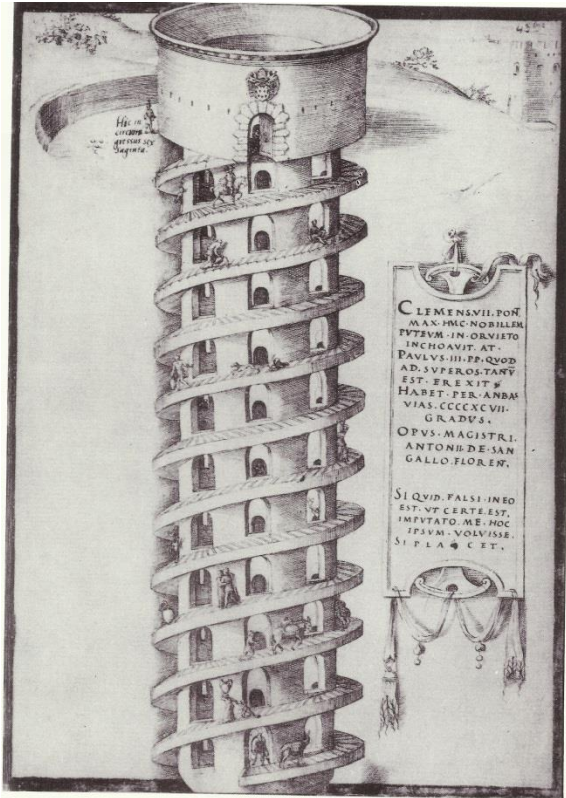 Hic in
gressus sex
saginta.
CLEMENS.VII.PON̄.
MAX·HMC·NOBILLEM
PVTEVM·IN·ORVIETO
INCHOAVIT. AT·
PAVLVS·III·PP·QVOD
AD·SVPEROS·TANV̄
EST·EREXIT
HABET·PER·ANBAS
VIAS·CCCCXCVII·
GRADVS.
OPVS·MAGISTRI.
ANTONII·DE·SAN
GALLO·FLOREN̄.
SI QVID·FALSI·IN EO
EST·VT CERTE·EST,
IMPVTATO·ME·HOC
IPSVM·VOLVISSE.
SI PLACET.